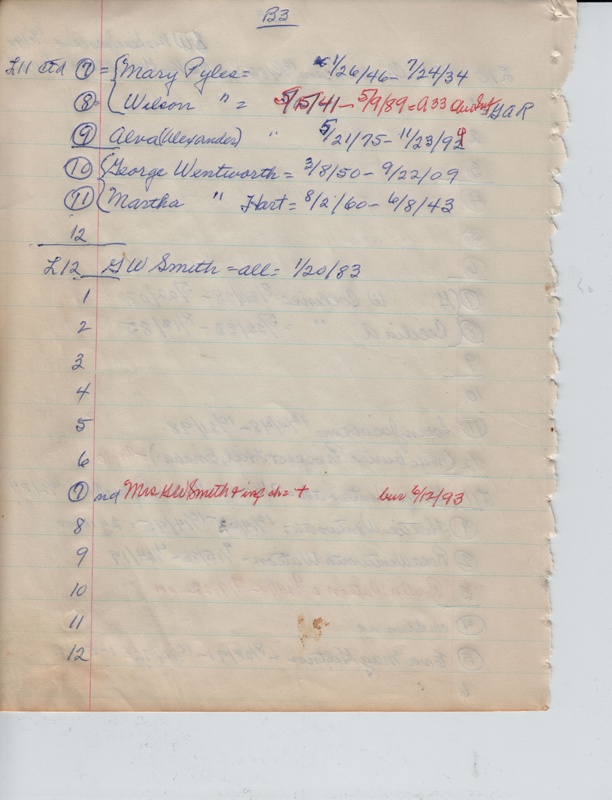 B3
L11 ctd ⑦ = { Mary Pyles = 1/26/46 - 7/24/34
⑧ = ( Wilson " = 5/15/41 - 5/9/89 = a 33 GAR
⑨ Alva (Alexander) " 5/21/75 - 11/23/94
⑩ { George Wentworth = 3/8/50 - 9/22/09
⑪ ( Martha " Hart = 8/2/60 - 6/8/43
12
L12 GW Smith = all = 1/20/83
1
2
3
4
5
6
⑦ nd Mrs GW Smith + inf dau + bur 6/12/93
8
9
10
11
12